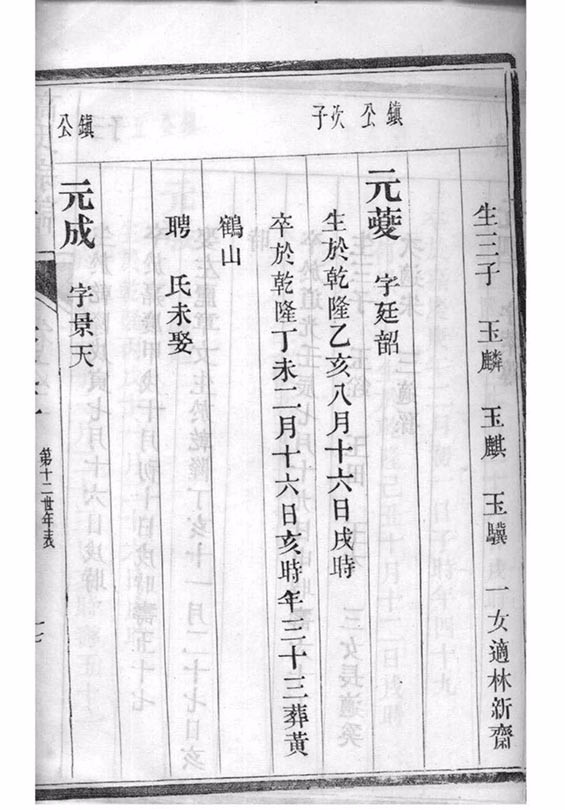 生三子 玉麟 玉麒 玉驥 一女適林新齋
鎮公次子
元夔 字廷韶
生於乾隆乙亥八月十六日戌時
卒於乾隆丁未二月十六日亥時年三十三葬黃
鶴山
聘 氏未娶
鎮公
元成 字景天
第十二世年表